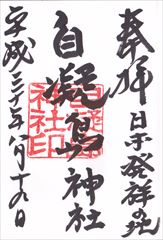 奉拝 日本発祥の地
自凝島神社
自凝島
神社印
平成三十年八月十九日